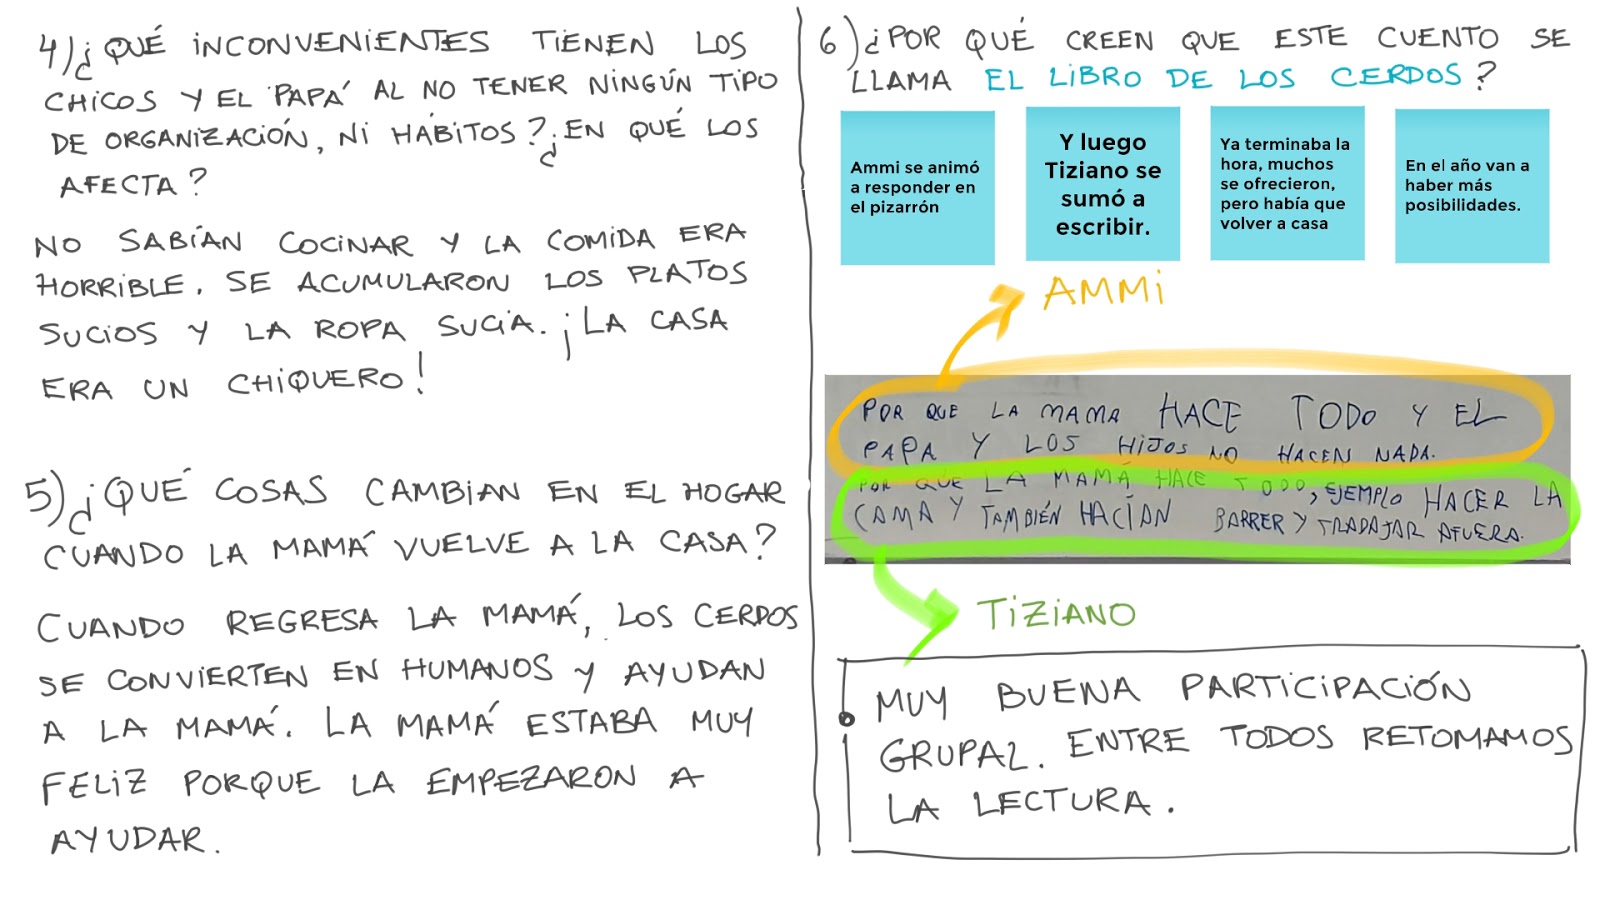 4) ¿QUÉ INCONVENIENTES TIENEN LOS
CHICOS Y EL PAPÁ AL NO TENER NINGÚN TIPO
DE ORGANIZACIÓN, NI HÁBITOS? ¿EN QUÉ LOS
AFECTA?
NO SABÍAN COCINAR Y LA COMIDA ERA
HORRIBLE. SE ACUMULARON LOS PLATOS
SUCIOS Y LA ROPA SUCIA. ¡LA CASA
ERA UN CHIQUERO!
5) ¿QUÉ COSAS CAMBIAN EN EL HOGAR
CUANDO LA MAMÁ VUELVE A LA CASA?
CUANDO REGRESA LA MAMÁ, LOS CERDOS
SE CONVIERTEN EN HUMANOS Y AYUDAN
A LA MAMÁ. LA MAMÁ ESTABA MUY
FELIZ PORQUE LA EMPEZARON A
AYUDAR.
6) ¿POR QUÉ CREEN QUE ESTE CUENTO SE
LLAMA EL LIBRO DE LOS CERDOS?
Ammi se animó
a responder en
el pizarrón
Y luego
Tiziano se
sumó a
escribir.
Ya terminaba la
hora, muchos
se ofrecieron,
pero había que
volver a casa
En el año van a
haber más
posibilidades.
AMMI
POR QUE LA MAMA HACE TODO Y EL
PAPA Y LOS HIJOS NO HACEN NADA.
POR QUE LA MAMÁ HACE TODO, EJEMPLO HACER LA
CAMA Y TAMBIÉN HACÍAN BARRER Y TRADAJAR AFUERA.
TIZIANO
MUY BUENA PARTICIPACIÓN
GRUPAL. ENTRE TODOS RETOMAMOS
LA LECTURA.